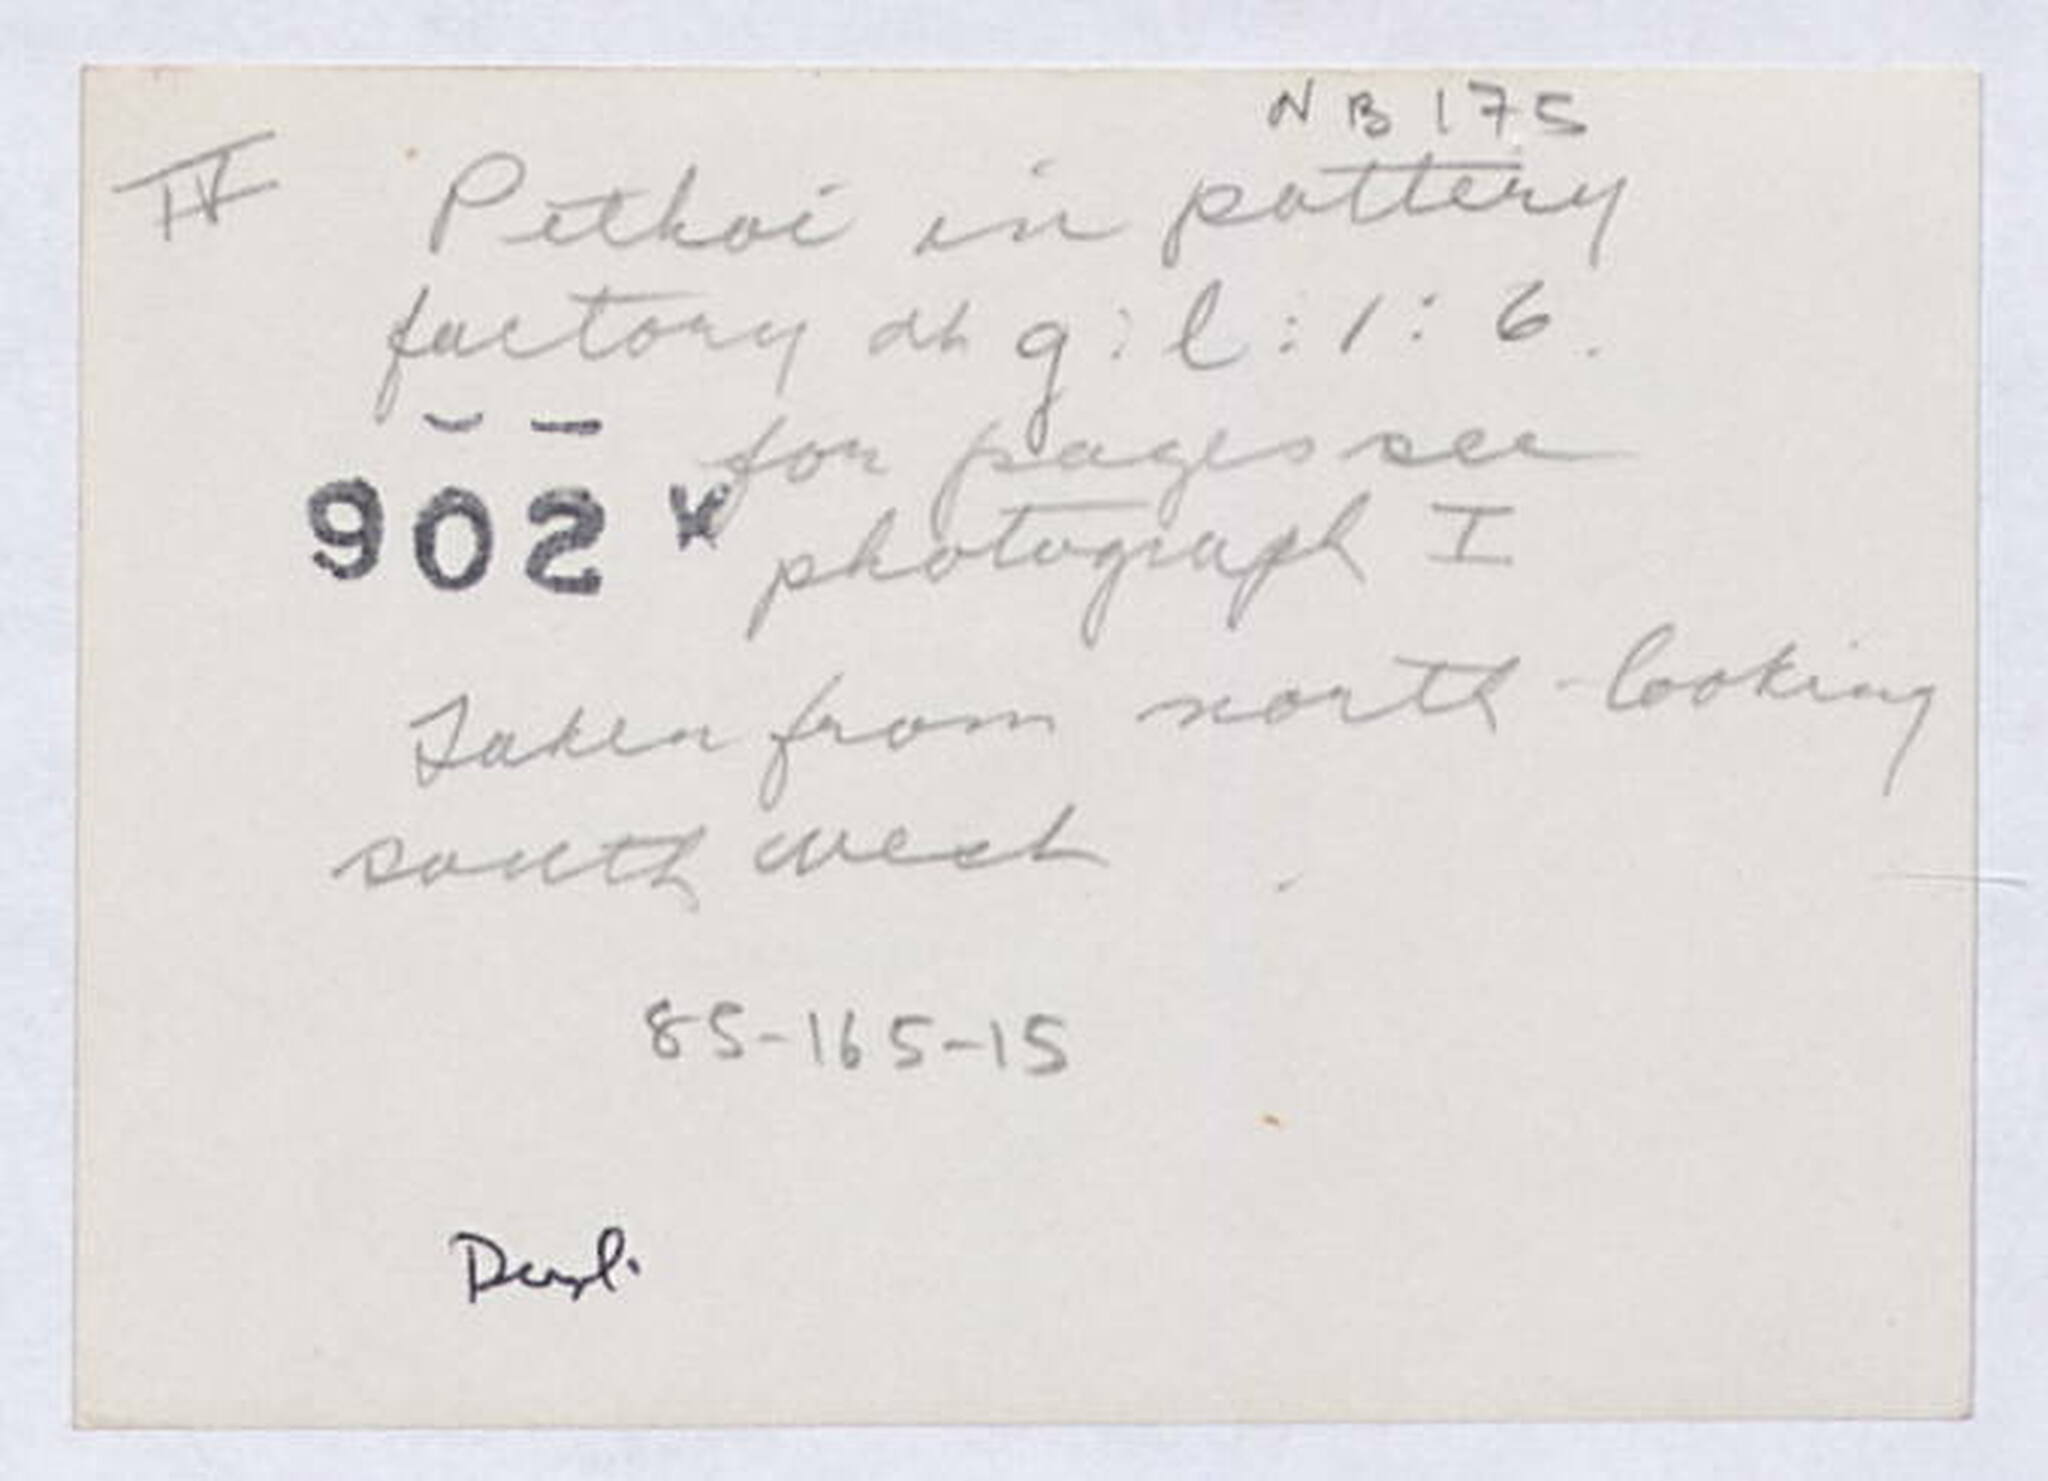 NB 175
IV Pithoi in pottery
factory at g : l : 1 : 6.
for pages see
902 * photograph I
Taken from north - looking
south west
85-165-15
Dupl.